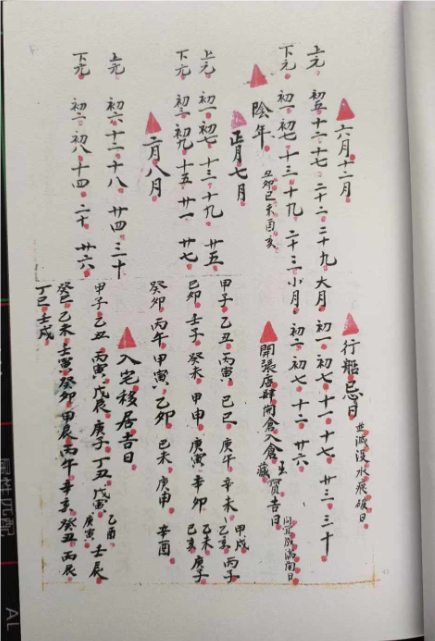 六月十二月
行船忌日
上元 初五 十二 十七 二十二 二十九 大月 初一 初七 十一 十七 廿三 三十
下元 初一 初七 十三 十九 二十三 小月 初二 初七 十二 廿六
陰年 丑卯巳未酉亥
開張店肆開倉入倉
吉日
正月七月
上元 初一 初七 十三 十九 廿五
下元 初三 初九 十五 廿一 廿七
甲子 乙丑 丙寅 己巳 庚午 辛未 甲戌 乙亥 丙子
己卯 壬子 癸未 甲申 庚寅 辛卯 乙未 己亥 庚子
癸卯 丙午 甲寅 乙卯 己未 庚申 辛酉
二月八月
上元 初六 十二 十八 廿四 三十
下元 初二 初八 十四 二十 廿六
入宅移居吉日
甲子 乙丑 丙寅 戊辰 庚子 丁丑 戊寅 乙酉 庚寅 壬辰
癸巳 乙未 壬寅 癸卯 甲辰 丙午 辛亥 癸丑 丙辰
丁巳 壬戌
AL